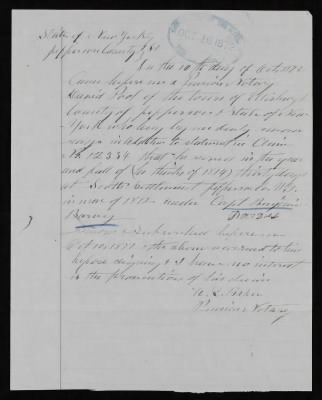 State of New York
Jefferson County } SS
OCT 16 1872
On the 10th day of Oct 1872
Came before me a Pension Notary
David Pool of the town of Ellisburg
County of Jefferson & State of New
York who being by me duly sworn
says in relation to statement in Claim
No. 12,334 that he served in the year
and fall of (he thinks of 1814) thirty days
at Scotts Settlement Jefferson Co N.Y.
in war of 1812 under Capt Benjamin
Barney
Sworn & Subscribed before me
Oct 10 1872 & the above was read to him
before signing & I have no interest
in the prosecution of his claim
Baker
Pension Notary